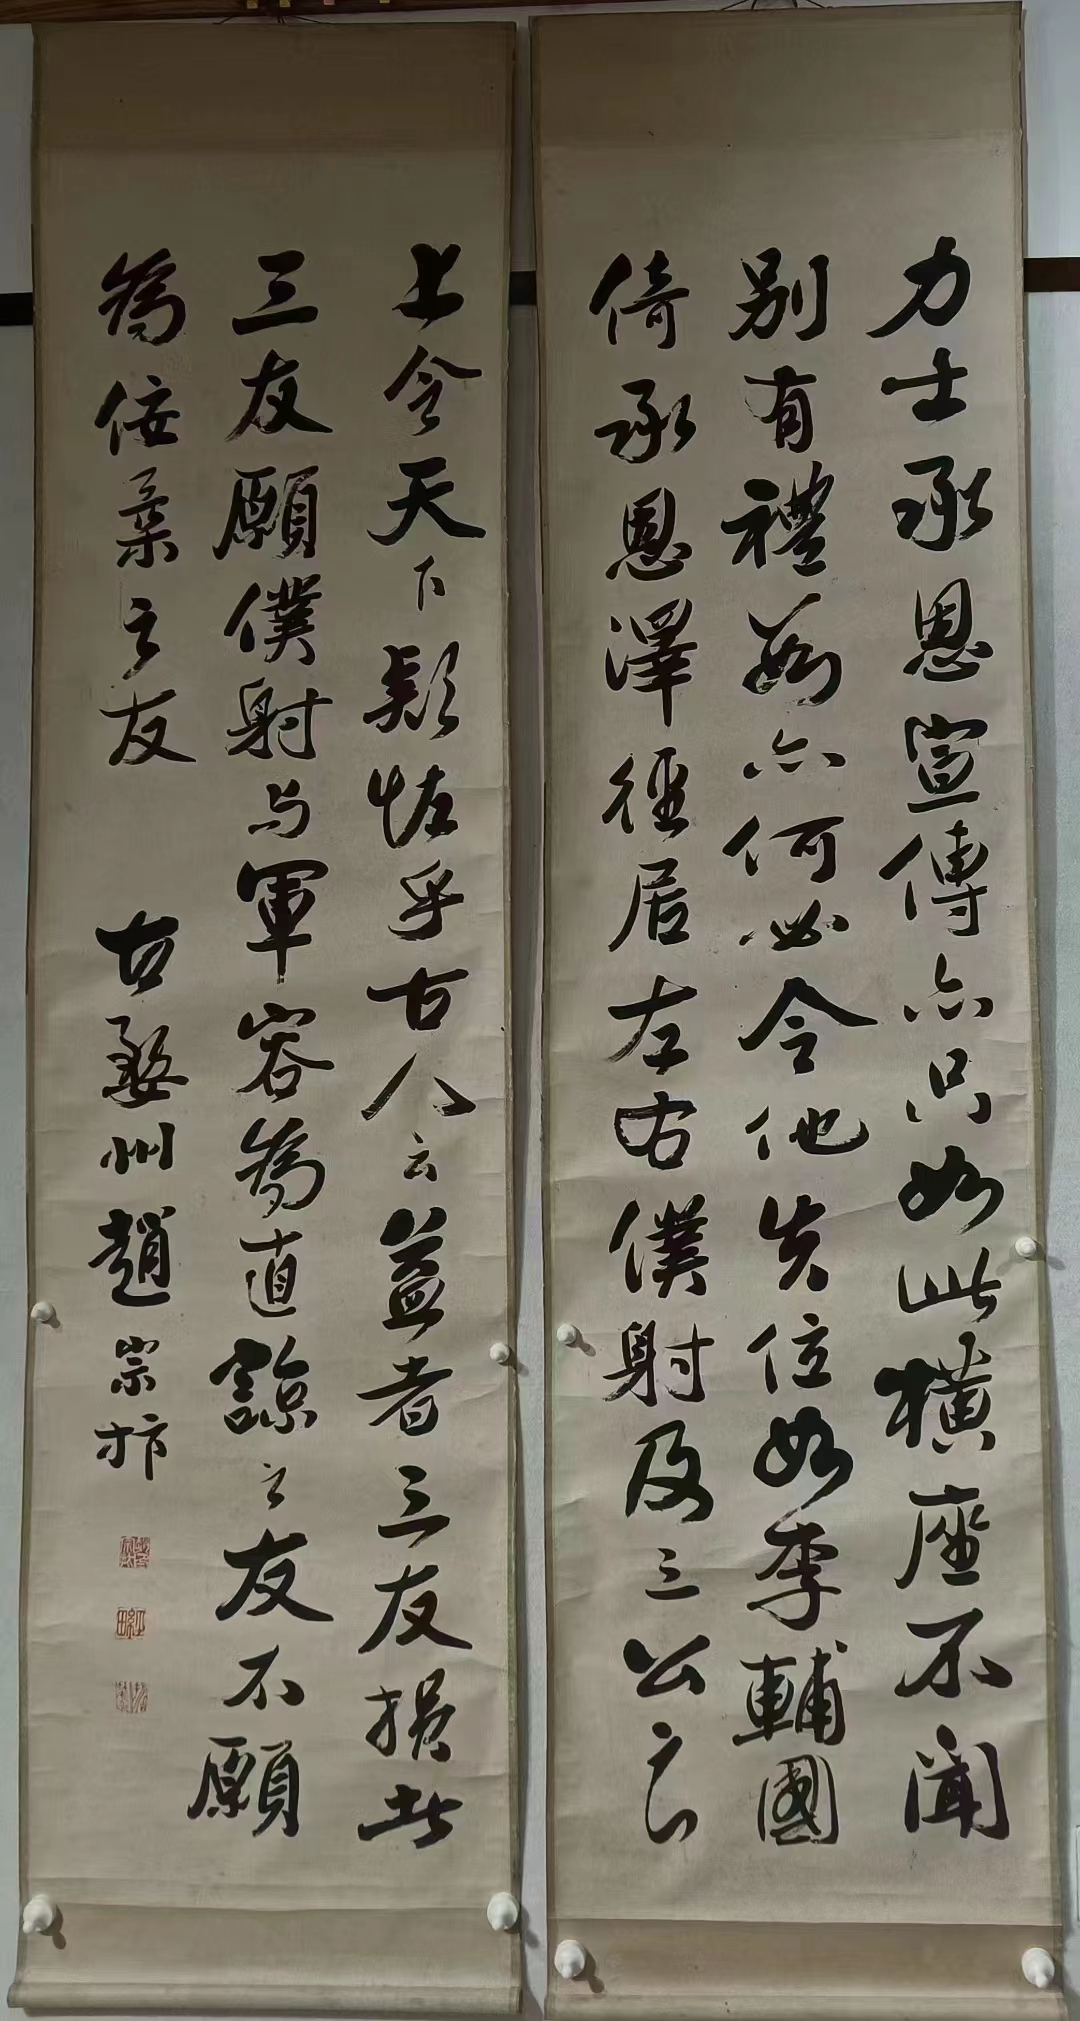 力士承恩宣傳亦只如此橫座不聞
别有禮數亦何必令他失位如李輔國
倚承恩澤徑居左右僕射及三公之
上令天下疑恠乎古人云益者三友損者
三友願僕射与軍容為直諒之友不願
為佞柔之友
古婺州趙宗抃